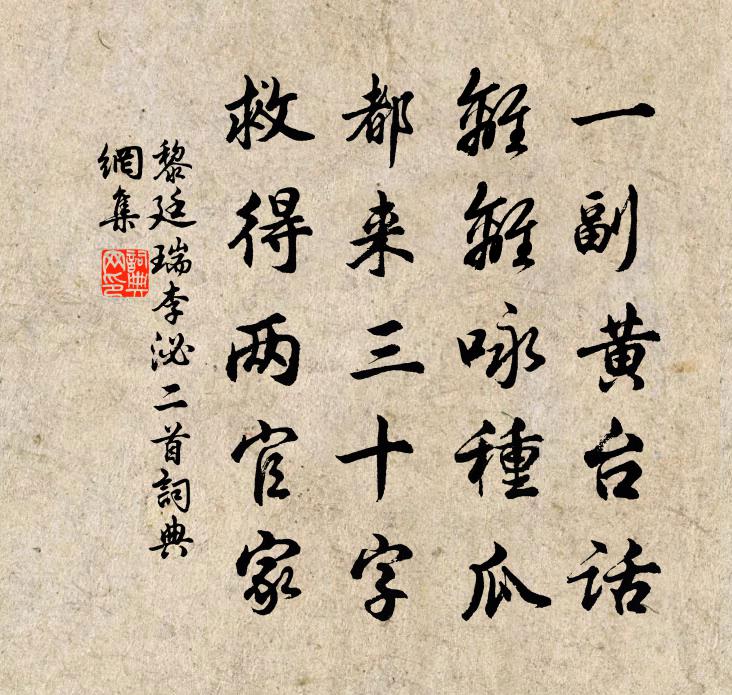 一副黄台话
離離咏種瓜
都来三十字
救得两官家
黎廷瑞李泌二首詞典
網集
詞典
网印